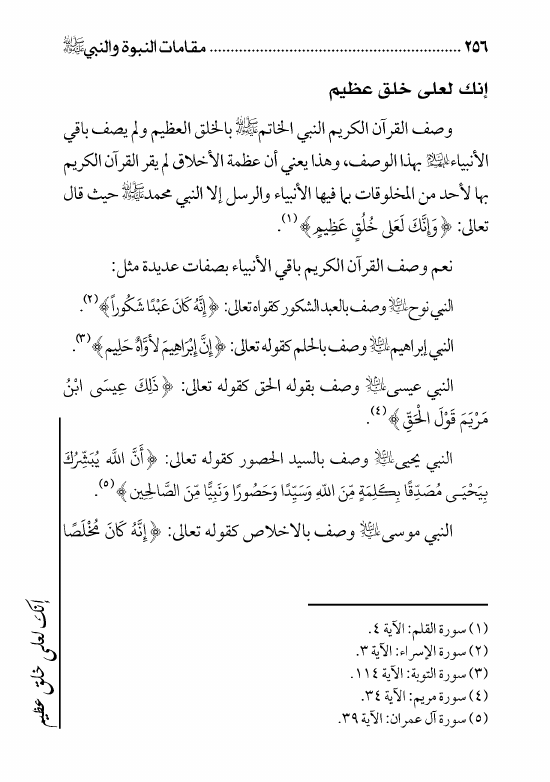 ٢٥٦ ............................................................ مقامات النبوة والنبي ﷺ
إنك لعلى خلق عظيم
وصف القرآن الكريم النبي الخاتم ﷺ بالخلق العظيم ولم يصف باقي
الأنبياء بهذا الوصف، وهذا يعني أن عظمة الأخلاق لم يقر القرآن الكريم
بها لأحد من المخلوقات بما فيها الأنبياء والرسل إلا النبي محمد ﷺ حيث قال
تعالى: ﴿وَإِنَّكَ لَعَلى خُلُقٍ عَظِيمٍ﴾(١).
نعم وصف القرآن الكريم باقي الأنبياء بصفات عديدة مثل:
النبي نوح وصف بالعبد الشكور كقواه تعالى: ﴿إِنَّهُ كَانَ عَبْدًا شَكُوراً﴾(٢).
النبي إبراهيم وصف بالحلم كقوله تعالى: ﴿إِنَّ إِبْرَاهِيمَ لأوَّاهٌ حَلِيم﴾(٣).
النبي عيسى وصف بقوله الحق كقوله تعالى: ﴿ذَلِكَ عِيسَى ابْنُ
مَرْيَمَ قَوْلَ الْحَقِّ﴾(٤).
النبي يحيى وصف بالسيد الحصور كقوله تعالى: ﴿أَنَّ الله يُبَشِّرُكَ
بِيَحْيَـى مُصَدِّقًا بِكَلِمَةٍ مِّنَ اللهِ وَسَيِّدًا وَحَصُورًا وَنَبِيًّا مِّنَ الصَّالِحِين﴾(٥).
النبي موسى وصف بالاخلاص كقوله تعالى: ﴿إِنَّهُ كَانَ مُخْلَصًا
(١) سورة القلم: الآية ٤.
(٢) سورة الإسراء: الآية ٣.
(٣) سورة التوبة: الآية ١١٤.
(٤) سورة مريم: الآية ٣٤.
(٥) سورة آل عمران: الآية ٣٩.
إنك لعلى خلق عظيم